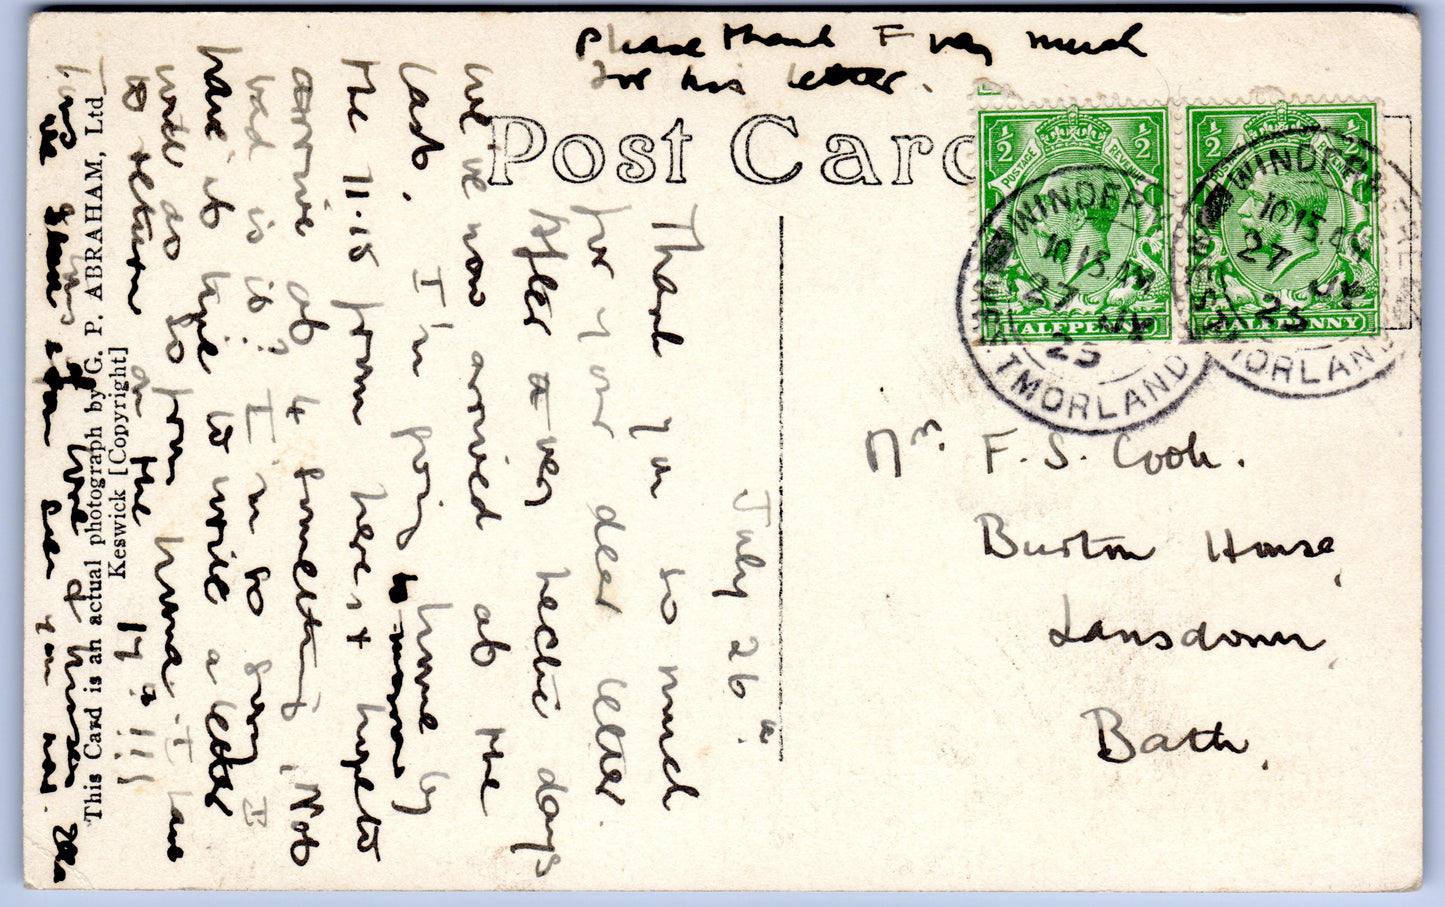 Please thank F very much
for his letter.
Post Card
1/2 1/2
POSTAGE REVENUE
HALFPENNY
1/2 1/2
POSTAGE REVENUE
HALFPENNY
WINDERMERE
10.15 AM
27 JY
25
WESTMORLAND
WINDERMERE
10.15 AM
27 JY
25
WESTMORLAND
Mrs. F. S. Cook.
Burton House,
Lansdown,
Bath.
July 26th.
Thank you so much
for your dear letter.
After a very hectic days
we've now arrived at the
last. I'm going home by
the 11.15 from here, & hope to
arrive at 4 something. Not
bad is it? I'm so sorry I
haven't time to write a letter
will do so from home. I have
to return on the 17th!!!
love & kisses
This Card is an actual photograph by G. P. ABRAHAM, Ltd
Keswick [Copyright]